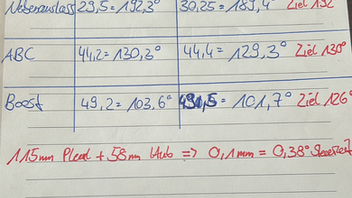 Nebenauslass 29,5 = 192,3° 30,25 = 189,4° Ziel 192
ABC 44,2 = 130,3° 44,4 = 129,3° Ziel 130°
Boost 49,2 = 103,6° 49,5 = 101,7° Ziel 126°
115mm Pleuel + 58mm Hub => 0,1mm = 0,38° Steuerzeit